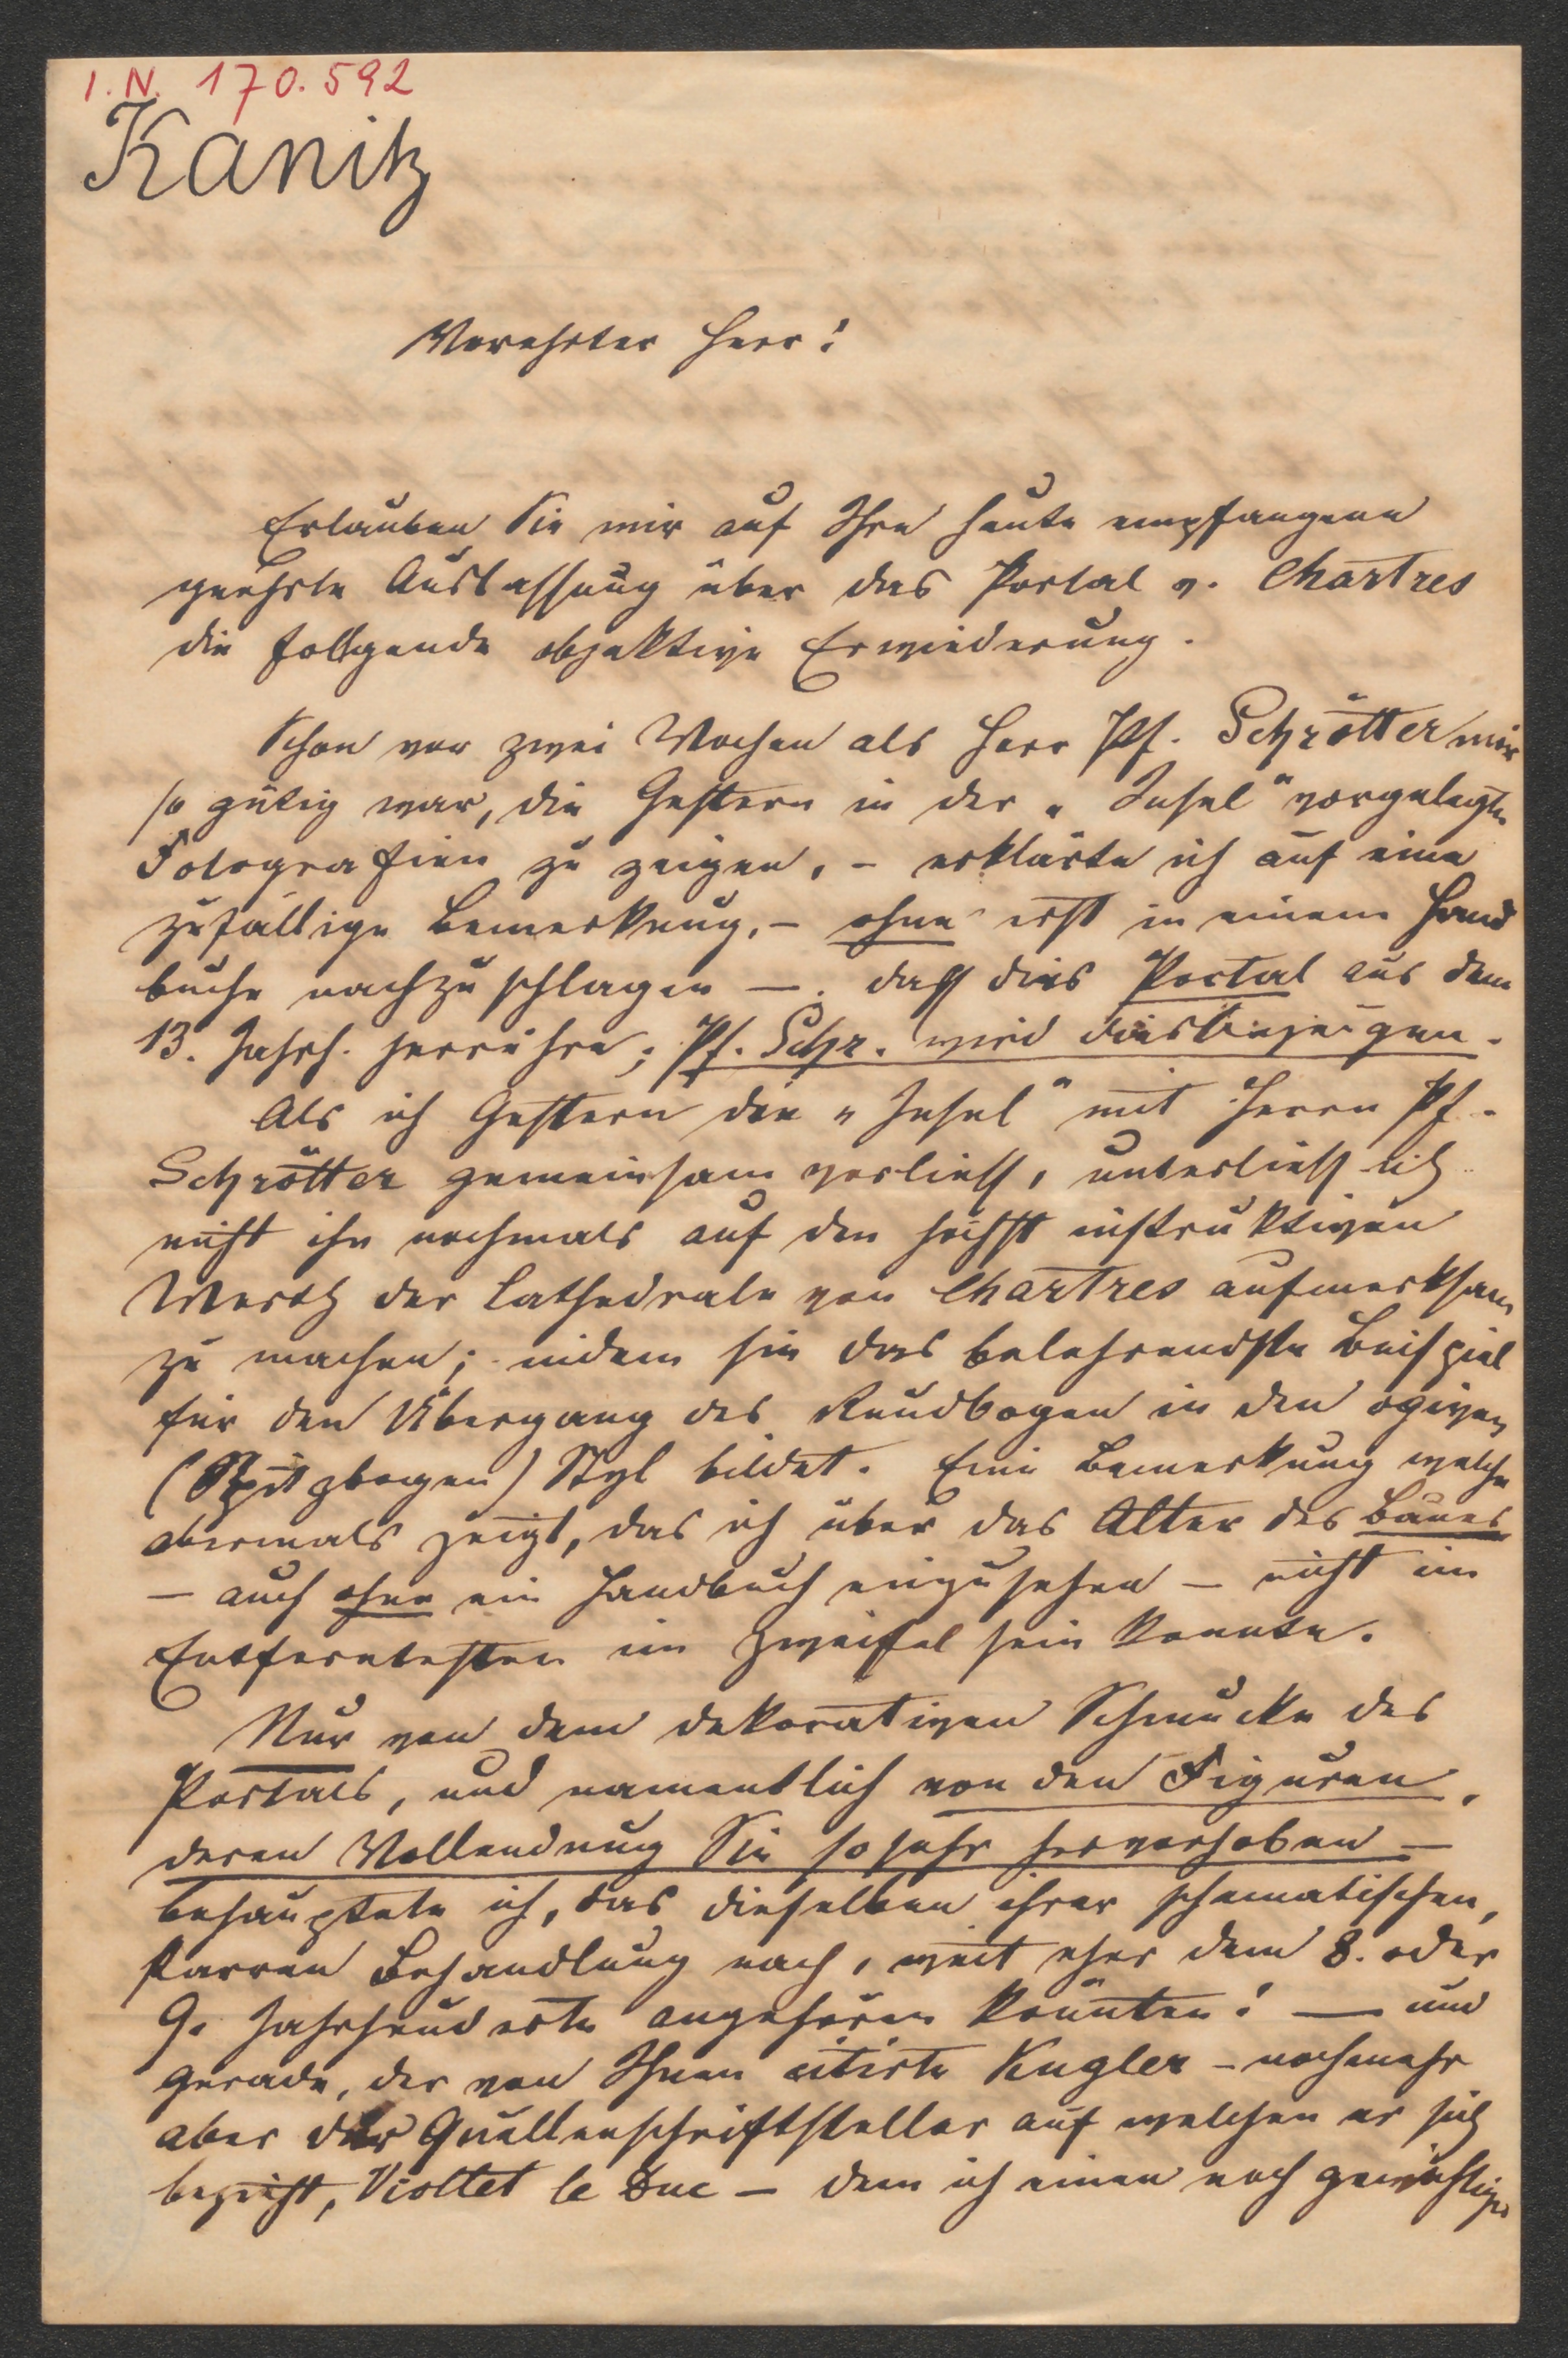 I.N. 170.592
Kanitz
Verehrter Herr!
Erlauben Sie mir auf Ihre heute empfangene
geehrte Auslassung über das Portal v. Chartres
die follgende objektive Erwiederung.
Schon vor zwei Wochen als Herr Pf. Schrötter mir
so gütig war, die Gestern in der „Insel" vorgelegten
Fotografien zu zeigen, – erklärte ich auf eine
zufällige Bemerkung, – ohne erst in einem Hand
buche nachzuschlagen –. daß dies Portal aus dem
13. Jahrh. herrühre; Pf. Schr. wird dies bezeigen.
Als ich Gestern die „Insel" mit Herrn Pf.
Schrötter gemeinsam verließ, unterließ ich
nicht ihn nochmals auf den höchst instruktiven
Werth der Cathedrale von Chartres aufmerksam
zu machen; indem sie das belehrendste Beispiel
für den Übergang des Rundbogen in den ogiven
(Spitzbogen) Styl bildet. Eine Bemerkung welche
abermals zeigt, das ich über das Alter des Baues
– auch ohne ein Handbuch einzusehen – nicht im
Entferntesten im Zweifel sein konnte.
Nur von dem dekorativen Schmucke des
Portals, und namentlich von den Figuren,
deren Vollendung Sie so sehr hervorhoben –
behauptete ich, das dieselben ihrer schematischen,
starren Behandlung nach, weit eher dem 8. oder
9. Jahrhunderte angehören könnten! – und
gerade, der von Ihnen citirte Kugler – nochmehr
aber der Quellenschriftsteller auf welchen er sich
bezieht, Viollet le Duc – dem ich einen noch gewichtiger